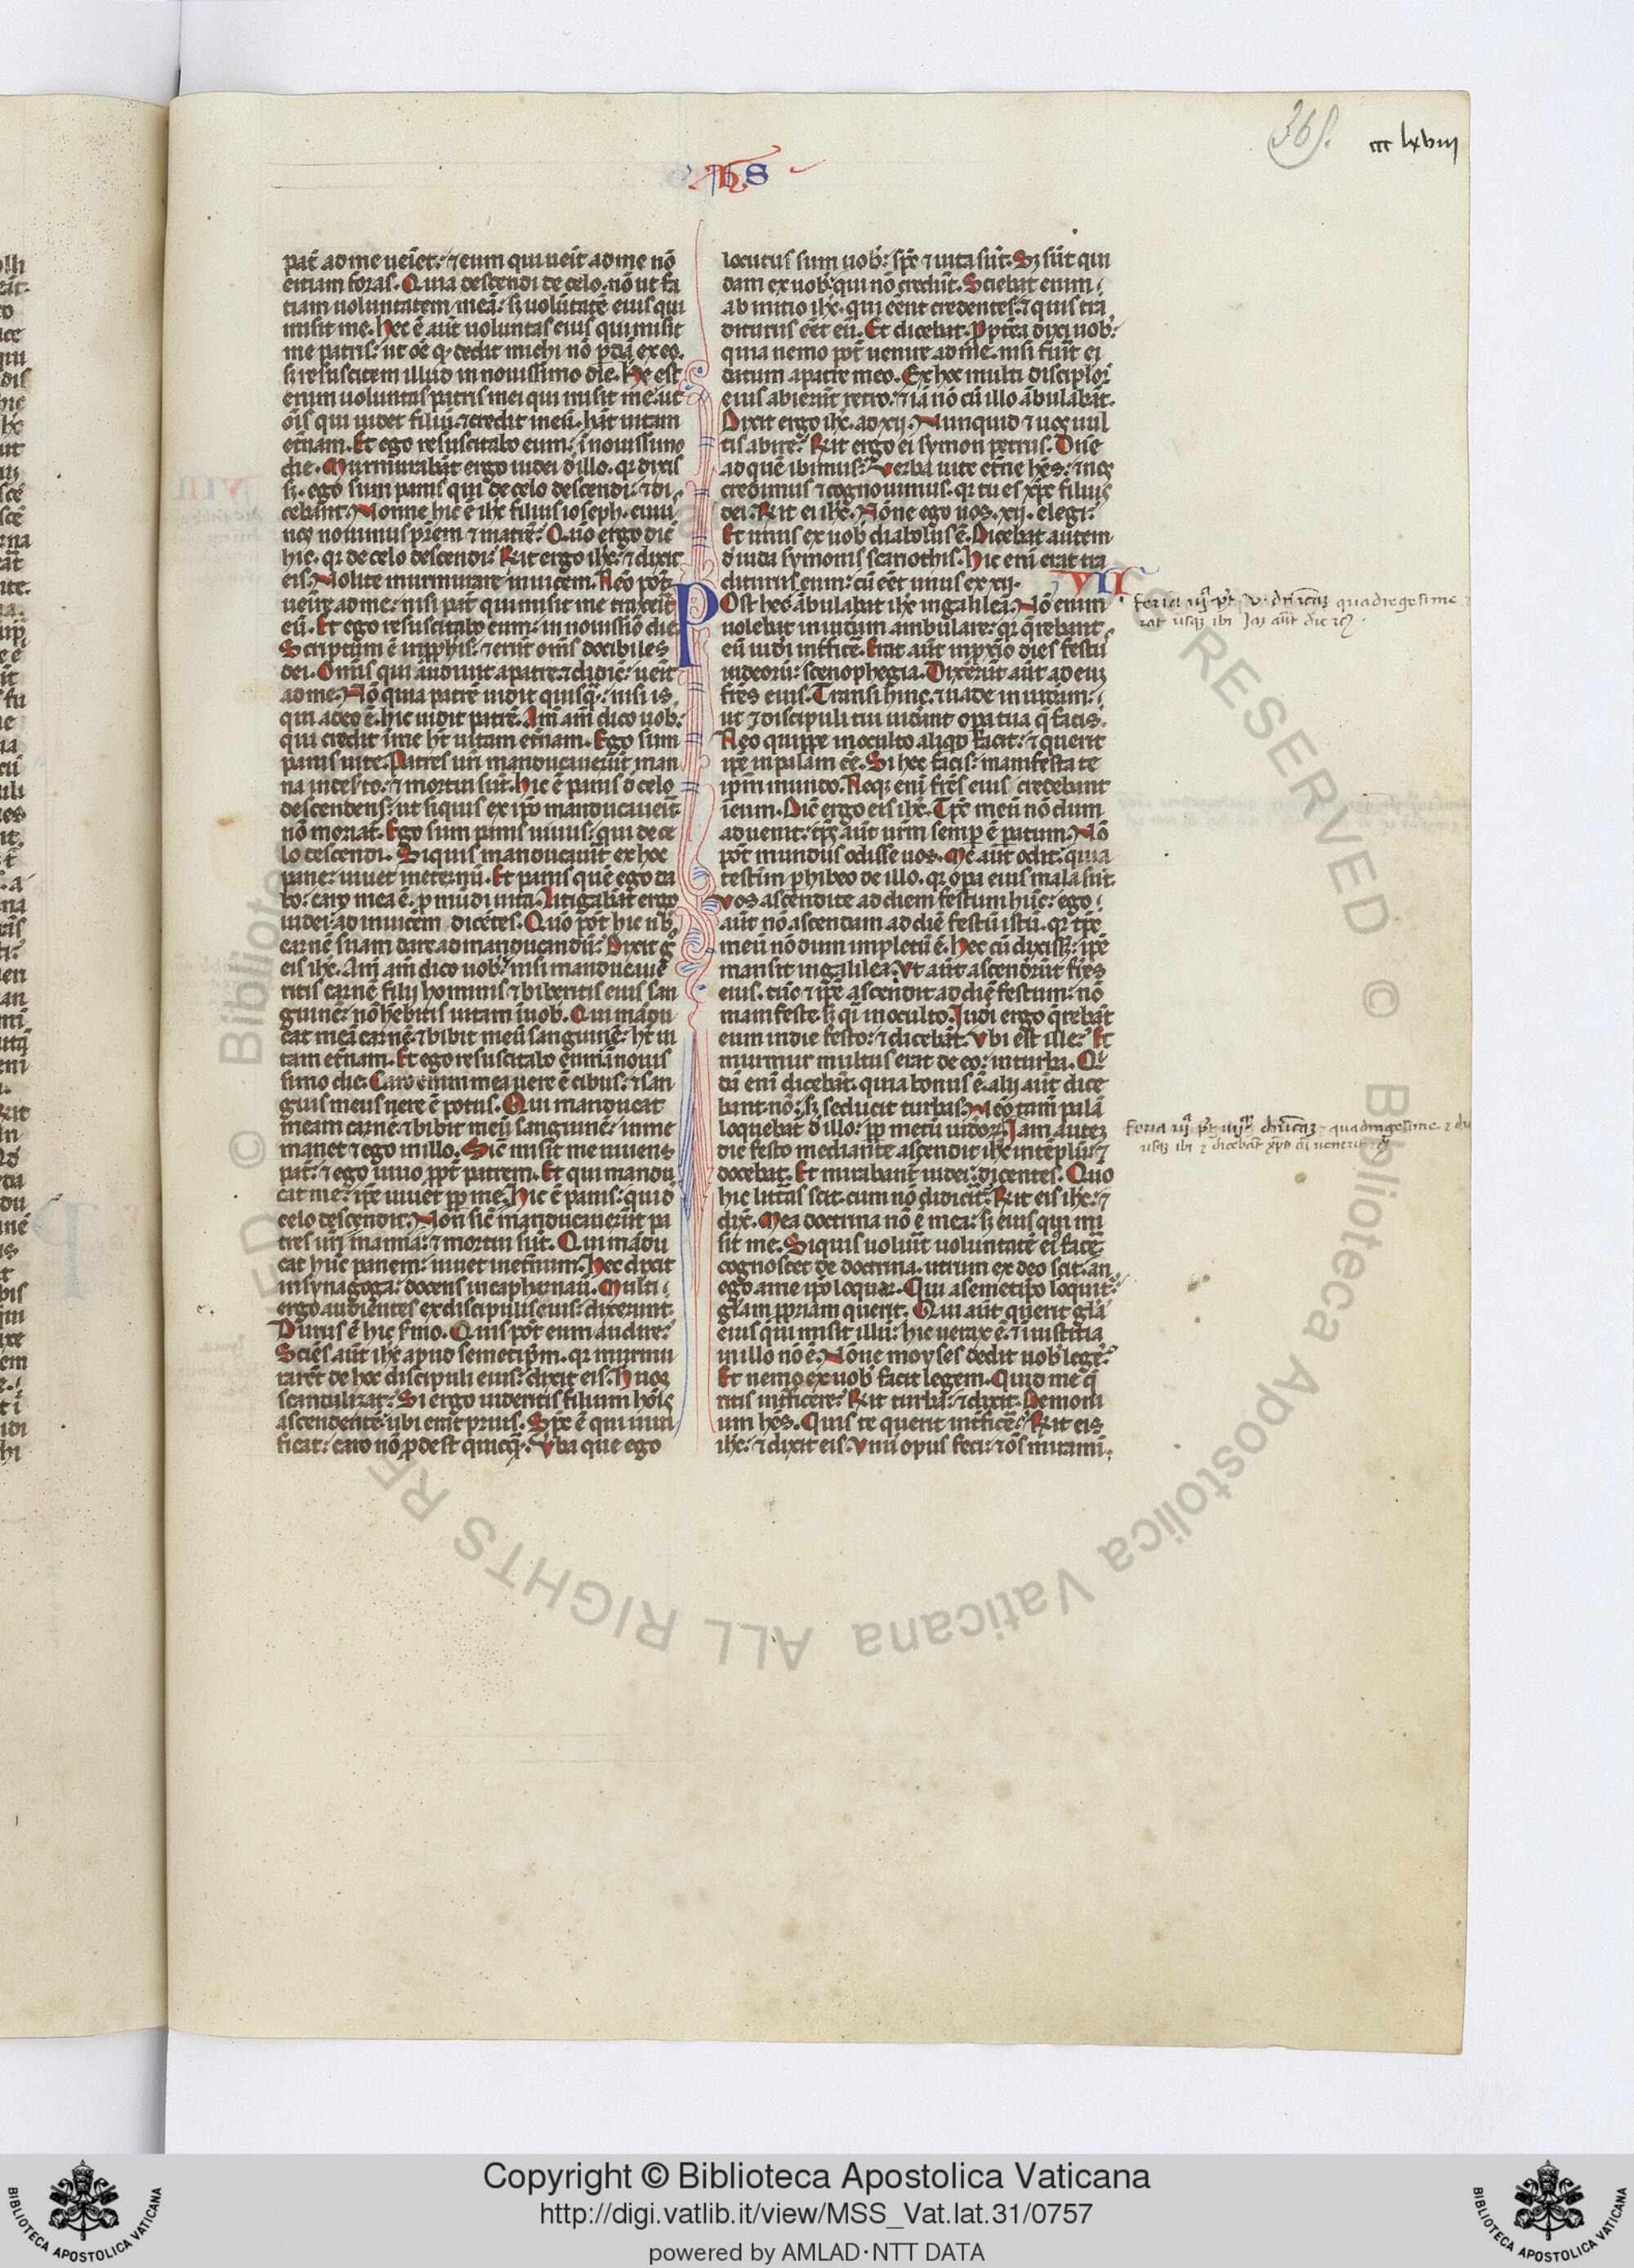 368.
ccc lxviii
hs
pat̄ ad me ueīet: ⁊ eum qui ueīt ad me nō
eitiam foras. Quia descendi de celo. nō ut fa
ciam uoluntatem meā: sꝫ uolūtatē eius qui
misit me. Hec ē aūt uoluntas eius qui misit
me patris: ut oē qͦ dedit michi nō ꝑdā ex eo.
sꝫ resuscitem illud in nouissimo die. Hec est
enim uoluntas patris mei qui misit me: ut
oīs qui uidet filiū ⁊ credit in eū. hāt uitam
et̄nam. Et ego resuscitabo eum: ī nouissimo
die. Murmurabāt ergo iudei d̄ illo. qr dixis
sꝫ. ego sum panis qui de celo descendi: ⁊ di
cebant. Nonne hic ē ihc̄ filius ioseph. cuiu
nos nouimus pr̄em ⁊ matrē? Quō ergo dic̄
hic. qr de celo descendi? Rn̄t ergo ihc̄ ⁊ dixit
eis. Nolite murmurare inuicem. Nēo pōt
uenīre ad me: nisi pat̄ qui misit me traxerit
eū. Et ego resuscitabo eum: in nouissīo die.
Scriptum ē in ꝓphīs: ⁊ erūt om̄s docibiles
dei. Omīs qui audiuit a patre ⁊ didic̄: ueīt
ad me. Nō quia patrē uidit quisqͣ: nisi is
qui a deo ē. hic uidit patrē. Am̄ am̄ dico uob:
qui credit ī me ht̄ uitam et̄nam. Ego sum
panis uite. Patres ur̄i manducauerūt man
na in deꝰto: ⁊ mortui sūt. Hic ē panis d̄ celo
descendens: ut siquis ex ip̄o manducauerit
nō moriat̄. Ego sum panis uiuus: qui de ce
lo descendi. Siquis manducauīt ex hoc
pane: uiuet in eternū. Et panis quē ego da
bo: caro mea ē. ꝓ mūdi uita. Litigabāt ergo
iudei: ad inuicem dicētes. Quō pōt hic nob
carnē suam dare ad manducandū? Dixit gͦ
eis ihc̄. Am̄ am̄ dico uob: nisi manducaue
ritis carnē filij hominis ⁊ biberitis eius san
guinē: nō hēbitis uitam ī uob. Qui mādu
cat meā carnē: ⁊ bibit meū sanguinē: ht̄ ui
tam et̄nam. Et ego resuscitabo eum ī nouis
simo die. Caro enim mea uere ē cibus: ⁊ san
guis meus uere ē potus. Qui manducat
meam carnē: ⁊ bibit meū sanguinē: in me
manet ⁊ ego in illo. Sic̄ misit me uiuens
pat̄: ⁊ ego uiuo ꝓpt̄ patrem. Et qui mandu
cat me: ip̄e uiuet ꝓp me. Hic ē panis: qui d̄
celo descendit. Non sic̄ manducauerūt pa
tres ur̄i manna: ⁊ mortui sūt. Qui mādu
cat hūc panem: uiuet in et̄num. Hec dixit
in synagoga: docens in capharnaū. Multi
ergo audientes ex discipulis eius: dixerunt.
Durus ē hic sꝰmo. Quis pōt eum audire?
Sciēs aūt ihc̄ apud semetip̄m. qr murmu
rarēt de hoc discipuli eius: dixit eis. Hͦ uos
scandalizat? Si ergo uideritis filium hoīs
ascendentē: ubi erat prius. Sp̄c ē qui uiui
ficat: caro nō ꝓdest quicqͣ. Vꝰba que ego
locutus sum uob: sp̄c ⁊ uita sūt. Sꝫ sūt qui
dam ex uob: qui nō credūt. Sciebat enim
ab initio ihc̄. qui eēnt credentes: ⁊ quis tra
diturus eēt eū. Et dicebat. Ꝓpt̄ea dixi uob:
quia nemo pōt uenire ad me. nisi fuīt ei
datum a patre meo. Ex hoc multi disciploꝝ
eius abierūt retro: ⁊ iā nō cū illo ābulabāt.
Dixit ergo ihc̄. ad xij. Nunquid ⁊ uos uul
tis abire? Rn̄t ergo ei symon petrus. Dn̄e
ad quē ibimus? Verba uite et̄ne hēs: ⁊ nos
credimus ⁊ cognouimus. qr tu es xp̄c filius
dei. Rn̄t ei ihc̄. Nōne ego uos. xij. elegi:
Et unus ex uob diabolus ē. Dicebat autem
d̄ iuda symonis scariothis. Hic eni erat tra
diturus eum: cū eēt unus ex xij.
VII
Post hec ābulabat ihc̄ in galileā. Nō enim
uolebat in iudam ambulare: qr q̄rebant
eū iudi int̄fic̄e. Erat aūt in ꝓxīo dies festus
iudeoꝝ: scenophegia. Dixerūt aūt ad eum
fr̄es eius. Transi hinc. ⁊ uade in iudam:
ut ⁊ discipuli tui uidāt opa tua q̄ facis.
Nēo quippe in occulto aliqͥd facit: ⁊ querit
ip̄e in palam eē. Si hec facis: manifesta te
ip̄m mundo. Neqꝫ enī fr̄es eius credebant
in eum. Dic̄ ergo eis ihc̄. Tp̄c meū nō dum
aduenit: tp̄c aūt ur̄m semꝑ ē paratum. Nō
pōt mundus odisse uos. Me aūt odit: quia
testim ꝑhibeo de illo. qr opa eius mala sūt.
Vos ascendite ad diem festum hūc: ego
aūt nō ascendam ad diē festū istū. qr tp̄c
meū nō dum impletū ē. Hec cū dixissꝫ: ip̄e
mansit in galilea. Vt aūt ascenderūt fr̄es
eius. tūc ⁊ ip̄e ascendit ad diē festum: nō
manifeste sꝫ qͣi in occulto. Iudi ergo q̄rebāt
eum in die festo: ⁊ dicebāt. Vbi est ille? Et
murmur multus erat de eo: in turba. Qͥ
dā eni dicebāt. quia bonus ē. alij aūt dice
bant. nō: sꝫ seducit turbas. Nēo tam̄ palā
loquebat̄ d̄ illo: ꝓp metū iudeoꝝ. Iam autem
die festo mediante ascendit ihc̄ in tēplū: ⁊
docebat. Et mirabant̄ iudei: dicentes. Quō
hic litt̄as scit. cum nō didicit? Rn̄t eis ihc̄: ⁊
dix̄. Mea doctrina nō ē mea: sꝫ eius qui mi
sit me. Siquis uoluīt uoluntatē eiꝰ fac̄e:
cognoscet de doctrina. utrum ex deo sit. an
ego a me ip̄o loquar. Qui a semetip̄o loquit̄:
gl̄am ꝓpriam querit. Qui aūt querit gl̄a
eius qui misit illū: hic uerax ē. ⁊ iniustitia
in illo nō ē. Nōne moyses dedit uob legē?
Et nemo ex uob facit legem. Quid me q̄
ritis int̄ficere? Rn̄t turba: ⁊ dixit. Demoni
um hēs. Quis te querit int̄fic̄e? Rn̄t eis
ihc̄: ⁊ dixit eis. Vnū opus feci: ⁊ oēs mirami
feria iij p̄t v. dn̄icaꝫ quadragesime
usqꝫ ibi
feria iij p̄t iiij dn̄icaꝫ quadragesime
usqꝫ ibi ⁊ dicebāt
© Biblioteca Apostolica Vaticana ALL RIGHTS RESERVED
© Biblioteca Apostolica Vaticana ALL RIGHTS RESERVED
Copyright © Biblioteca Apostolica Vaticana
http://digi.vatlib.it/view/MSS_Vat.lat.31/0757
powered by AMLAD·NTT DATA
BIBLIOTECA APOSTOLICA VATICANA
BIBLIOTECA APOSTOLICA VATICANA